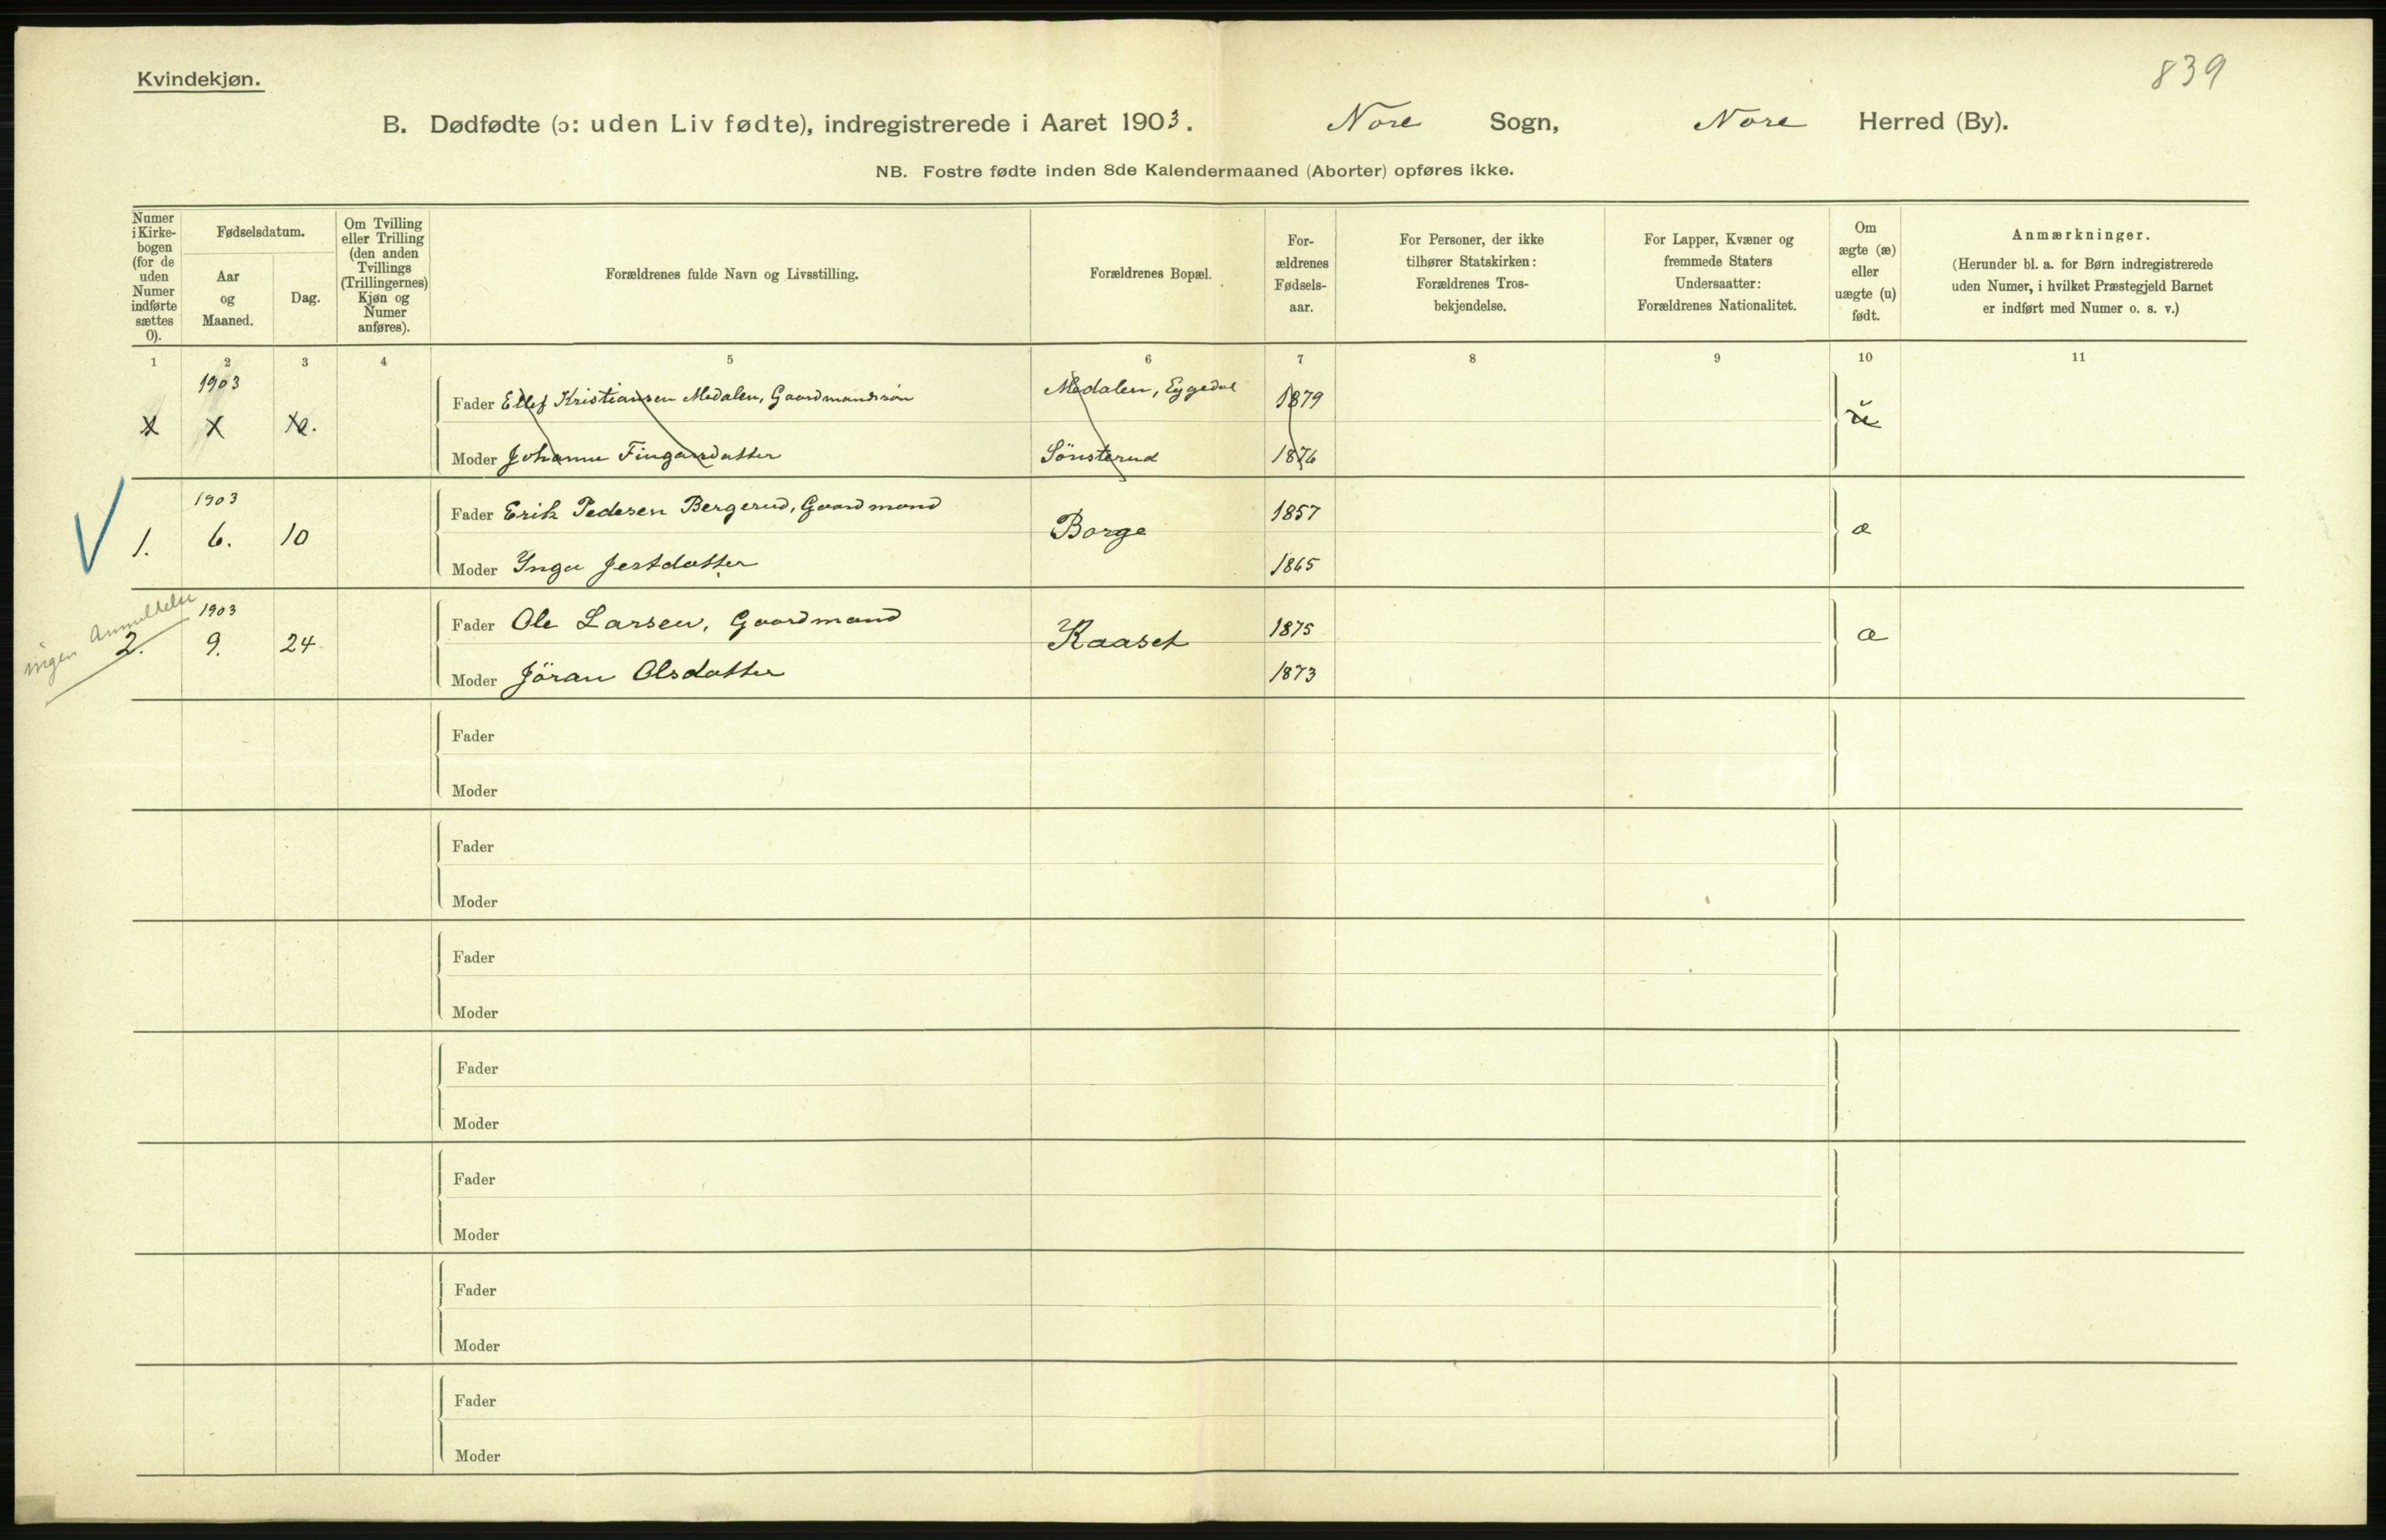 Kvindekjøn.
839
B. Dødfødte (ɔ: uden Liv fødte), indregistrerede i Aaret 1903. Nore Sogn, Nore Herred (By).
NB. Fostre fødte inden 8de Kalendermaaned (Aborter) opføres ikke.
Numer i Kirke- bogen (for de uden Numer indførte sættes 0).
Fødselsdatum.
Aar og Maaned.
Dag.
Om Tvilling eller Trilling (den anden Tvillings (Trillingernes) Kjøn og Numer anføres).
Forældrenes fulde Navn og Livsstilling.
Forældrenes Bopæl.
For- ældrenes Fødsels- aar.
For Personer, der ikke tilhører Statskirken: Forældrenes Tros- bekjendelse.
For Lapper, Kvæner og fremmede Staters Undersaatter: Forældrenes Nationalitet.
Om ægte (æ) eller uægte (u) født.
Anmærkninger.
(Herunder bl. a. for Børn indregistrerede uden Numer, i hvilket Præstegjeld Barnet er indført med Numer o. s. v.)
1 2 3 4 5 6 7 8 9 10 11
1903
Fader Ellef Kristiansen Medalen, Gaardmandssön Medalen, Eggedal 1879
ŭ
Moder Johanne Fingarsdatter Sönsterud 1876
1903
Fader Erik Pedersen Bergerud, Gaardmand 1857
1. 6. 10 Borge æ
Moder Inga Jestdatter 1865
ingen Anmeldelse
1903
Fader Ole Larsen, Gaardmand 1875
2. 9. 24 Kaaset æ
Moder Jöran Olsdatter 1873
Fader
Moder
Fader
Moder
Fader
Moder
Fader
Moder
Fader
Moder
Fader
Moder
Fader
Moder